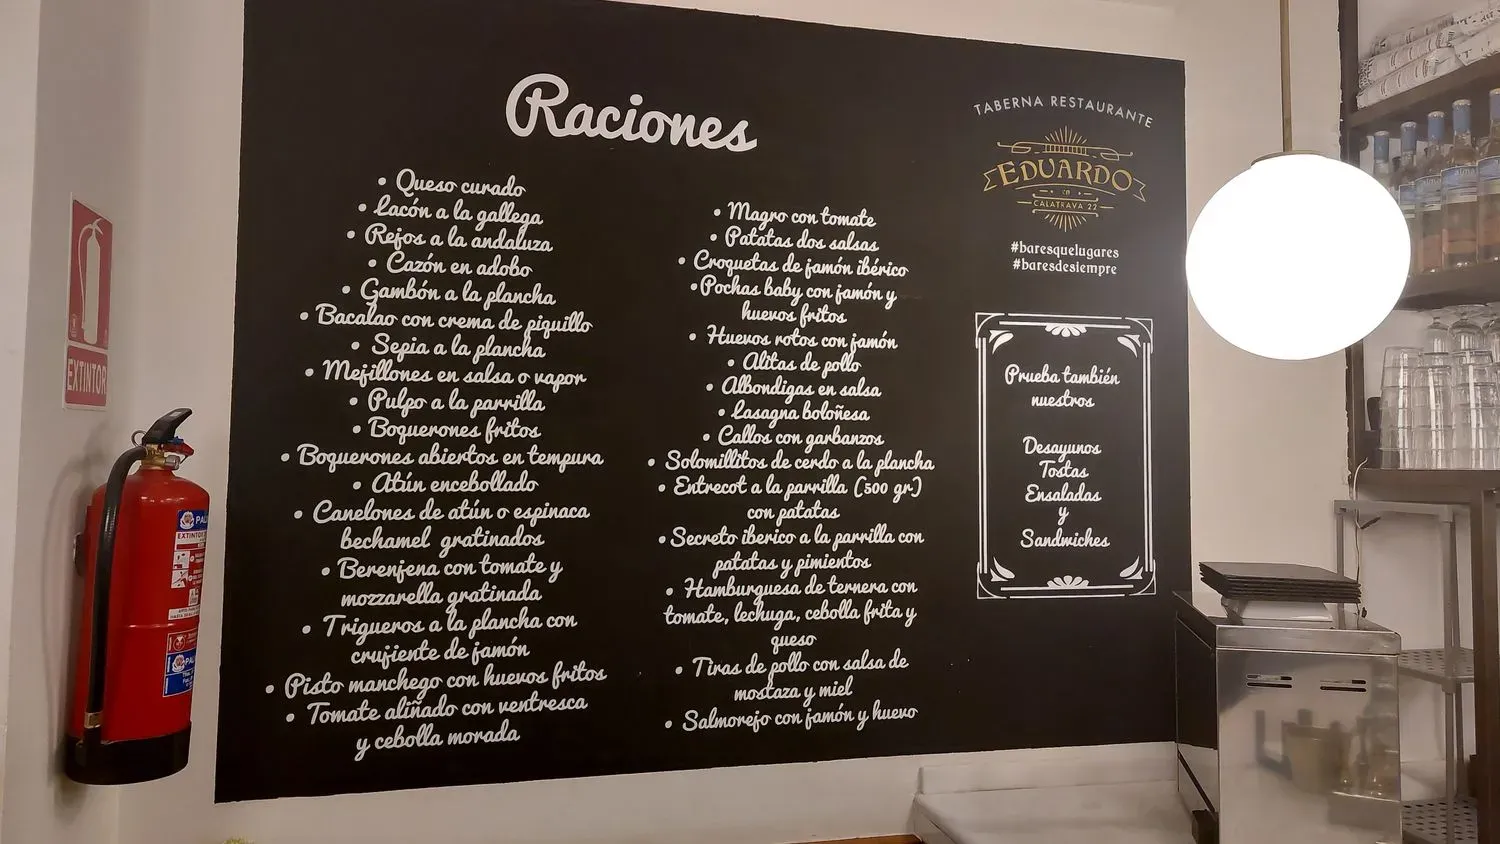 Raciones
• Queso curado
• Lacón a la gallega
• Rejos a la andaluza
• Cazón en adobo
• Gambón a la plancha
• Bacalao con crema de piquillo
• Sepia a la plancha
• Mejillones en salsa o vapor
• Pulpo a la parrilla
• Boquerones fritos
• Boquerones abiertos en tempura
• Atún encebollado
• Canelones de atún o espinaca
bechamel gratinados
• Berenjena con tomate y
mozzarella gratinada
• Trigueros a la plancha con
crujiente de jamón
• Pisto manchego con huevos fritos
• Tomate aliñado con ventresca
y cebolla morada
• Magro con tomate
• Patatas dos salsas
• Croquetas de jamón ibérico
• Pochas baby con jamón y
huevos fritos
• Huevos rotos con jamón
• Alitas de pollo
• Albondigas en salsa
• Lasagna boloñesa
• Callos con garbanzos
• Solomillitos de cerdo a la plancha
• Entrecot a la parrilla (500 gr.)
con patatas
• Secreto iberico a la parrilla con
patatas y pimientos
• Hamburguesa de ternera con
tomate, lechuga, cebolla frita y
queso
• Tiras de pollo con salsa de
mostaza y miel
• Salmorejo con jamón y huevo
TABERNA RESTAURANTE
EDUARDO
EN
CALATRAVA 22
#baresquelugares
#baresdesiempre
Prueba también
nuestros
Desayunos
Tostas
Ensaladas
y
Sandwiches
EXTINTOR